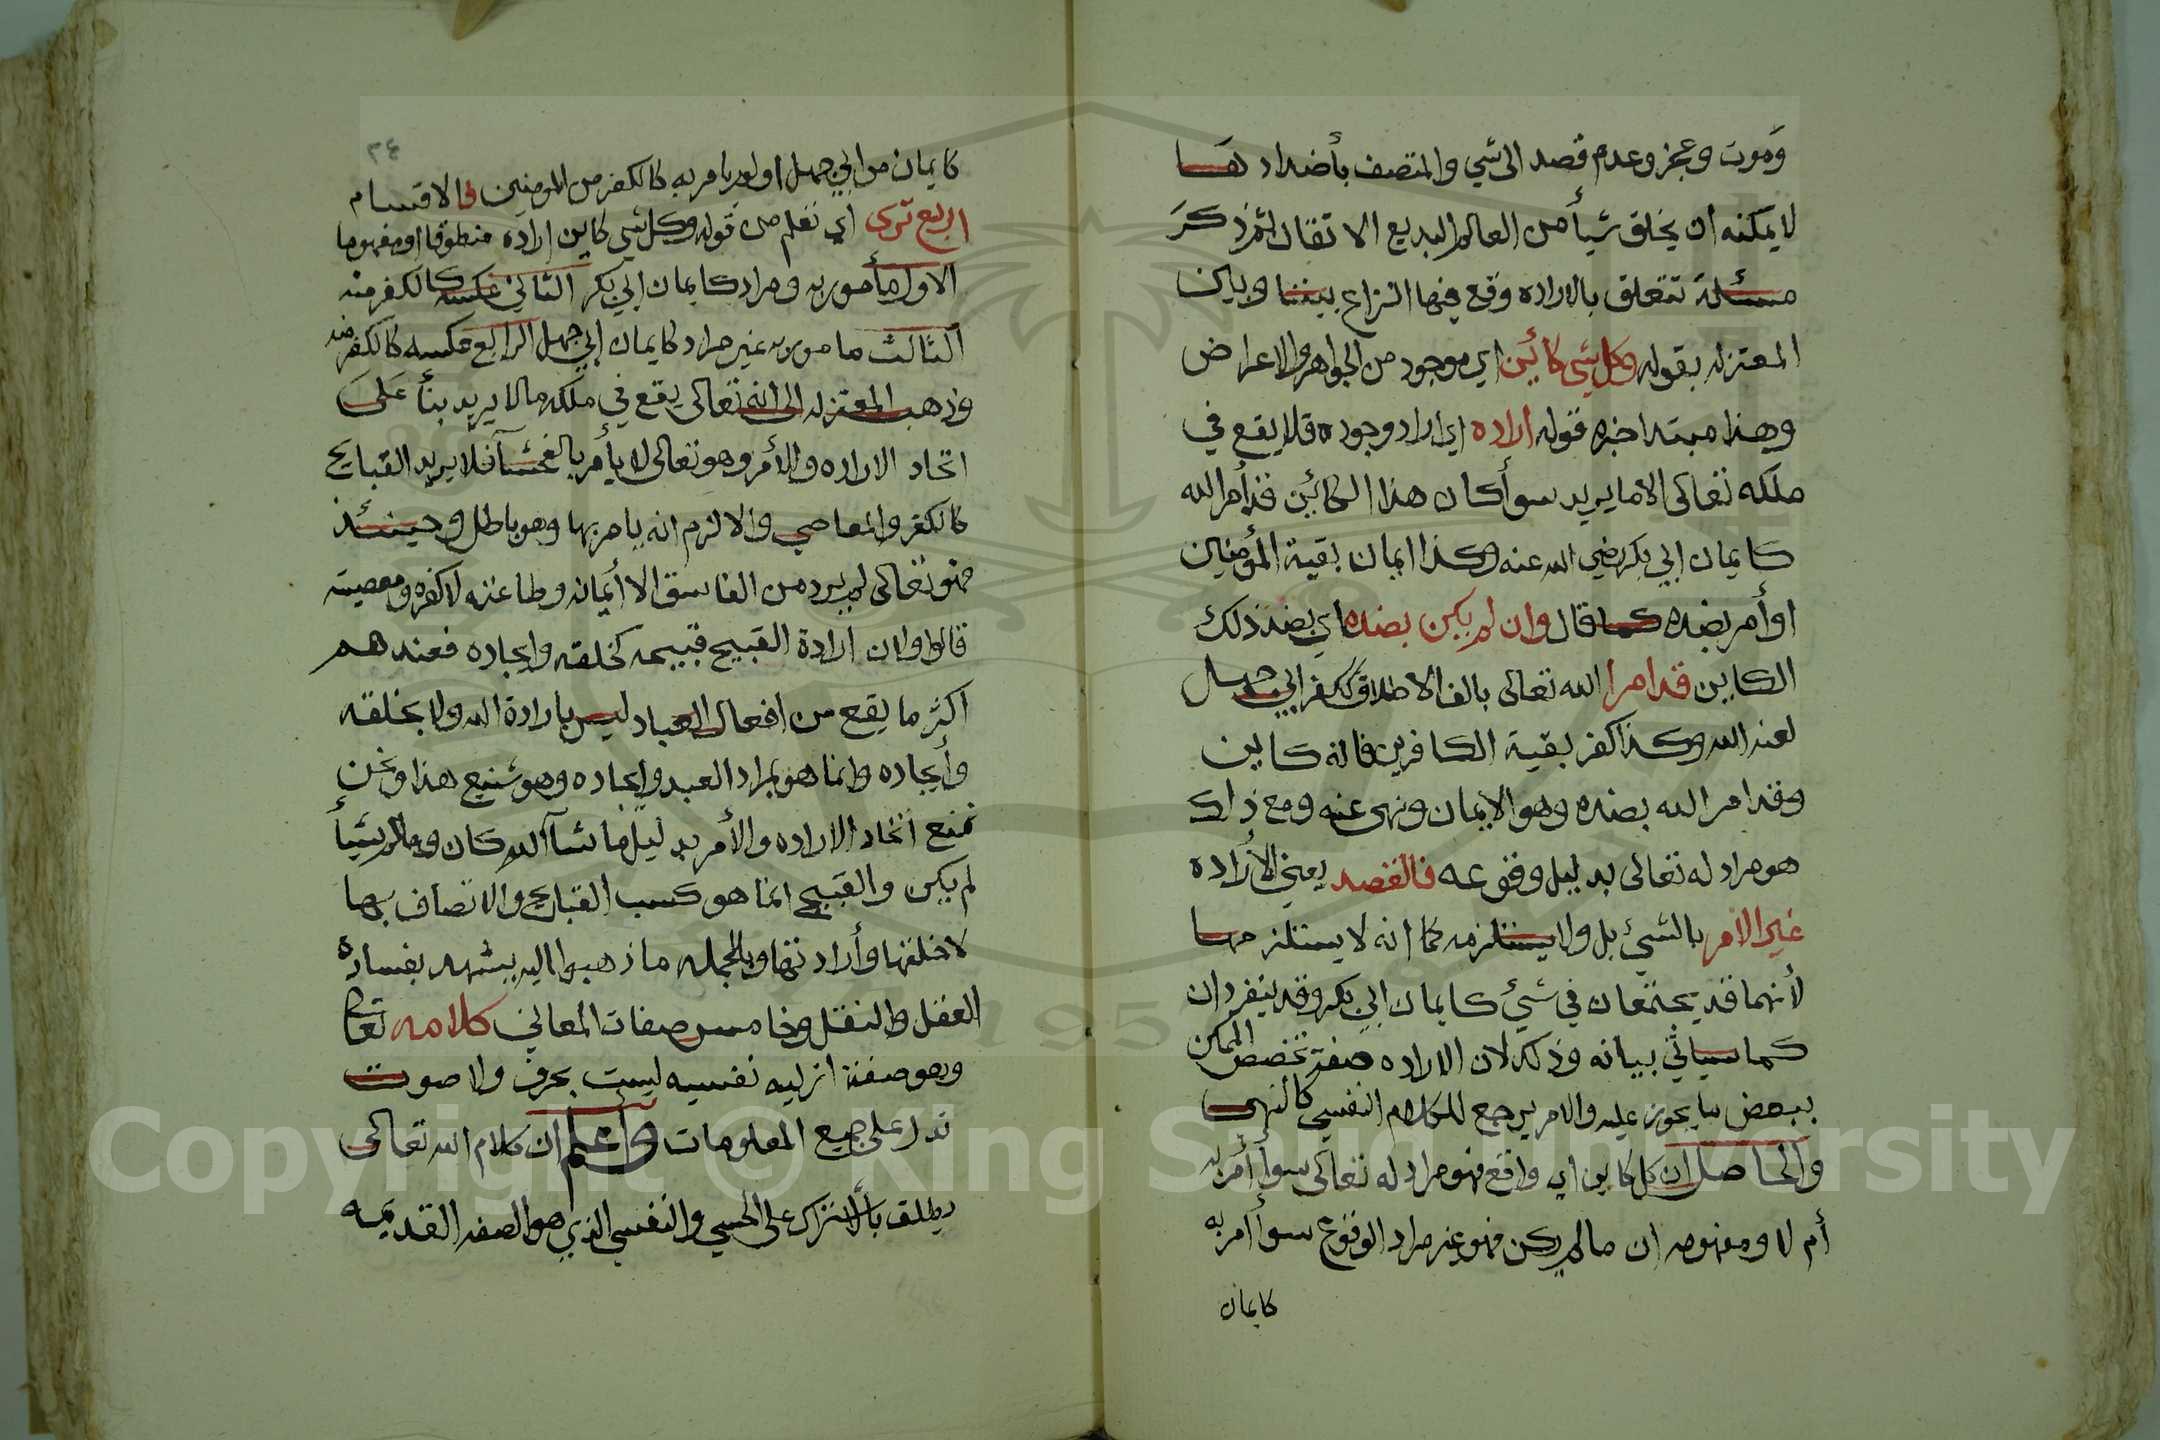 وموت وعجز وعدم قصد الى شي والمتصف بأضداد لها
لا يمكنه ان يخلق شيأ من العالم البديع الاتقان ثم ذكر
مسئلة تتعلق بالاراده وقع فيها النزاع بيننا وبين
المعتزله بقوله وكل شي كائن اي موجود من الجواهر والاعراض
وهذا مبتدا خبره قوله اراده اي اراد وجوده فلا يقع في
ملكه تعالى الا ما يريد سوأ كان هذا الكائين قد أمر الله
كايمان ابي بكر رضي الله عنه وكذا ايمان بقية المؤمنين
او أمر بضده كما قال وان لم يكن بضده اي بضد ذلك
الكاين قد امرا الله تعالى بالف الاطلاق ككفر ابي جهل
لعنه الله وكذا كفر بقية الكافرين فانه كاين
وقد امر الله بضده وهو الايمان ونهى عنه ومع ذلك
هو مراد له تعالى بدليل وقوعه فالقصد يعني الأراده
غير الامر بالشيء بل ولا يستلزمه كما انه لا يستلزمها
لأنهما قد يجتمعان في شيء كايمان ابي بكر وقد ينفردان
كما سيأتي بيانه وذلك لان الاراده صفة تخصص الممكن
ببعض ما يجوز عليه والامر يرجع للكلام النفسي كالنهى
والحاصل ان كل كاين اي واقع فهو مراد له تعالى سوأ أمر به
أم لا ومفهومه ان ما لم يكن فهو غير مراد الوقوع سوأ أمر به
كايمان
٢٤
كايمان من ابي جهل او لم يامر به كالكفر من المومنين فالاقسام
اربع ترى اي تعلم من قوله وكل شي كاين اراده منطوقا ومفهوما
الاول مأمور به ومراد كايمان ابي بكر الثاني عكسه كالكفر منه
الثالث مامور به غير مراد كايمان ابي جهل الرابع عكسه كالكفر منه
وذهب المعتزله الى انه تعالى يقع في ملكه ما لا يريد بنأ على
اتحاد الاراده والأمر وهو تعالى لا يأمر بالفحشآ فلا يريد القبايح
كالكفر والمعاصي والا لزم انه يامر بها وهو باطل وحينئذ
فهو تعالى لم يرد من الفاسق الا أيمانه وطاعته لا كفره ومعصيته
قالوا وان ارادة القبيح قبيحه كخلقه وايجاده فعندهم
اكثر ما يقع من افعال العباد ليس بارادة الله ولا بخلقه
وأيجاده وانما هو بمراد العبد وايجاده وهو شنيع هذا ونحن
نمنع اتحاد الاراده والأمر بدليل ما شآ الله كان وما لم يشأ
لم يكن والقبيح انما هو كسب القبايح والاتصاف بها
لا خلقها وأرادتها وبالجمله ما ذهبوا اليه يشهد بفساده
العقل والنقل وخامس صفات المعاني كلامه تعالى
وهو صفة ازليه نفسيه ليست بحرف ولا صوت
تدل على جميع المعلومات واعلم ان كلام الله تعالى
يطلق بالأشتراك على الحسي والنفسي الذي هو الصفه القديمه
Copyright © King Saud University
1957